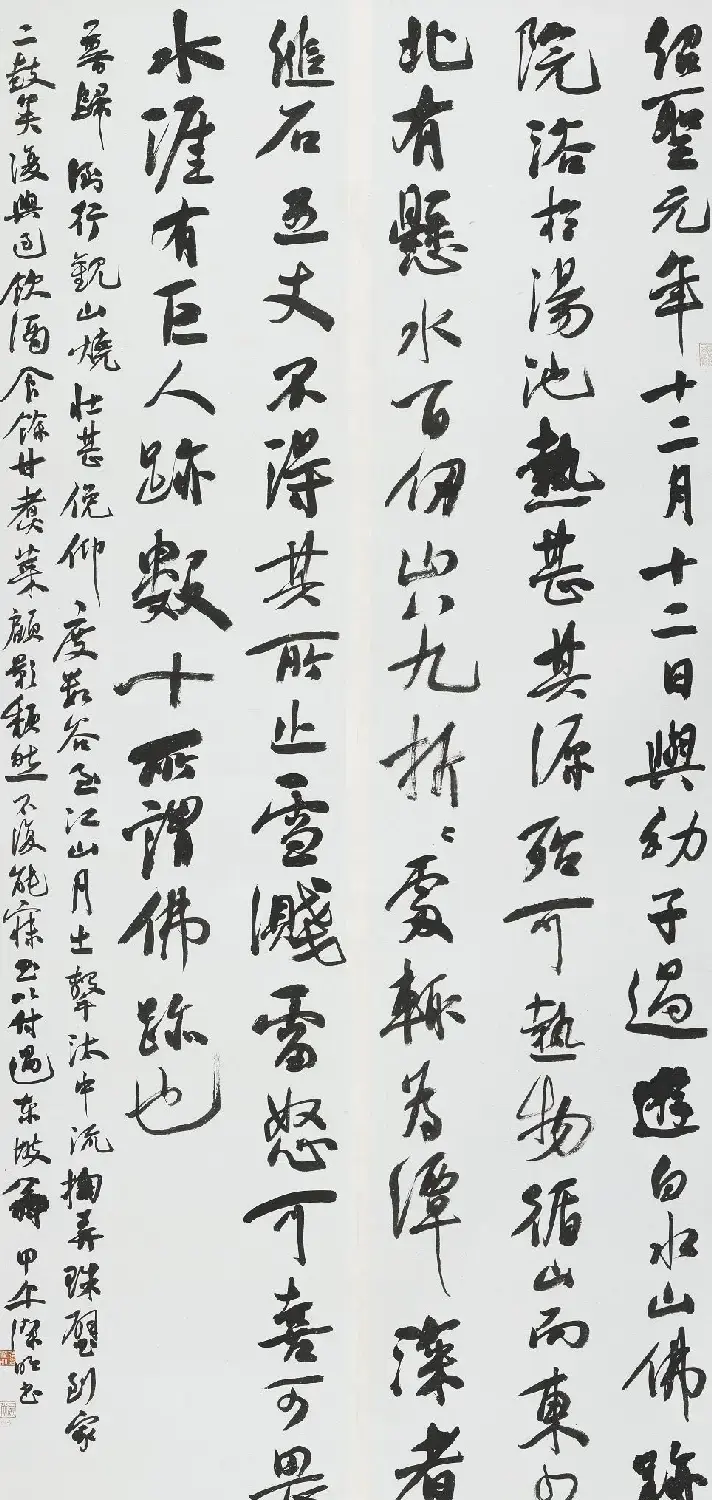 紹聖元年十二月十二日與幼子過遊白水山佛跡
院浴於湯池熱甚其源殆可熱物循山而東少
北有懸水百仞山八九折〻處輒為潭深者
縋石五丈不得其所止雪濺雷怒可喜可畏
水涯有巨人跡數十所謂佛跡也
暮歸倒行觀山燒壯甚俛仰度數谷至江山月出擊汰中流掬弄珠璧到家
二鼓矣復與過飲酒食餘甘煮菜顧影頹然不復能寐書以付過東坡翁 甲午 書